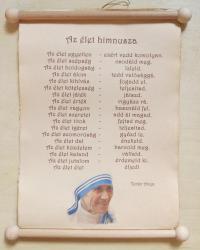 Az élet himnusza
Az élet egyetlen - ezért vedd komolyan.
Az élet szépség - csodáld meg.
Az élet boldogság - ízleld.
Az élet álom - tedd valósággá.
Az élet kihívás - fogadd el.
Az élet kötelesség - teljesítsd.
Az élet játék - játszd.
Az élet érték - vigyázz rá.
Az élet vagyon - használd fel.
Az élet szeretet - add át magad.
Az élet titok - fejtsd meg.
Az élet ígéret - teljesítsd.
Az élet szomorúság - győzd le.
Az élet dal - énekeld.
Az élet küzdelem - harcold meg.
Az élet kaland - vállald.
Az élet jutalom - érdemeld ki.
Az élet élet - éljed!
Teréz anya